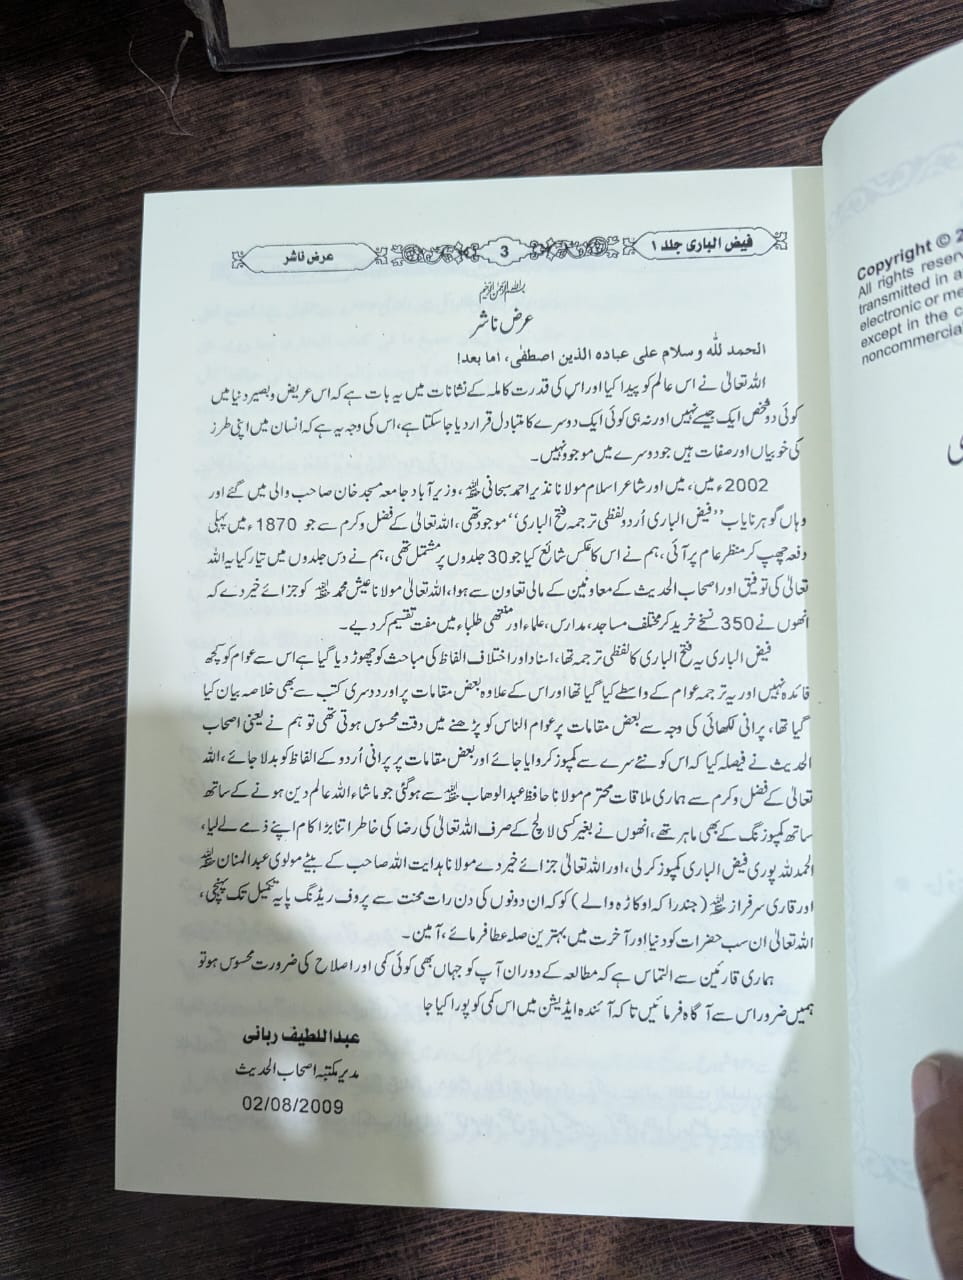 فیض الباری جلد ۱
3
عرض ناشر
بسم اللہ الرحمن الرحیم
عرض ناشر
الحمد للہ وسلام علی عبادہ الذین اصطفٰی، اما بعد!
اللہ تعالیٰ نے اس عالم کو پیدا کیا اور اس کی قدرت کاملہ کے نشانات میں یہ بات ہے کہ اس عریض و بصیر دنیا میں
کوئی دو شخص ایک جیسے نہیں اور نہ ہی کوئی ایک دوسرے کا متبادل قرار دیا جا سکتا ہے، اس کی وجہ یہ ہے کہ انسان میں اپنی طرز
کی خوبیاں اور صفات ہیں جو دوسرے میں موجود نہیں۔
2002ء میں، میں اور شاعر اسلام مولانا نذیر احمد سبحانی، وزیر آباد جامعہ مسجد خان صاحب والی میں گئے اور
وہاں گوہر نایاب ”فیض الباری اُردو لفظی ترجمہ فتح الباری“ موجود تھی، اللہ تعالیٰ کے فضل وکرم سے جو 1870ء میں پہلی
دفعہ چھپ کر منظر عام پر آئی، ہم نے اس کا عکس شائع کیا جو 30 جلدوں پر مشتمل تھی، ہم نے دس جلدوں میں تیار کیا یہ اللہ
تعالیٰ کی توفیق اور اصحاب الحدیث کے معاونین کے مالی تعاون سے ہوا، اللہ تعالیٰ مولانا عیش محمد کو جزائے خیر دے کہ
انھوں نے 350 نسخے خرید کر مختلف مساجد، مدارس، علماء اور منتھی طلباء میں مفت تقسیم کر دیے۔
فیض الباری یہ فتح الباری کا لفظی ترجمہ تھا، اسناد اور اختلاف الفاظ کی مباحث کو چھوڑ دیا گیا ہے اس سے عوام کو کچھ
فائدہ نہیں اور یہ ترجمہ عوام کے واسطے کیا گیا تھا اور اس کے علاوہ بعض مقامات پر اور دوسری کتب سے بھی خلاصہ بیان کیا
گیا تھا، پرانی لکھائی کی وجہ سے بعض مقامات پر عوام الناس کو پڑھنے میں دقت محسوس ہوتی تھی تو ہم نے یعنی اصحاب
الحدیث نے فیصلہ کیا کہ اس کو نئے سرے سے کمپوز کروایا جائے اور بعض مقامات پر پرانی اُردو کے الفاظ کو بدلا جائے، اللہ
تعالیٰ کے فضل وکرم سے ہماری ملاقات محترم مولانا حافظ عبدالوھاب سے ہو گئی جو ماشاء اللہ عالم دین ہونے کے ساتھ
ساتھ کمپوزنگ کے بھی ماہر تھے، انھوں نے بغیر کسی لالچ کے صرف اللہ تعالیٰ کی رضا کی خاطر اتنا بڑا کام اپنے ذمے لے لیا،
الحمد للہ پوری فیض الباری کمپوز کر لی، اور اللہ تعالیٰ جزائے خیر دے مولانا ہدایت اللہ صاحب کے بیٹے مولوی عبدالمنان
اور قاری سرفراز (جندراکہ اوکاڑہ والے) کو کہ ان دونوں کی دن رات محنت سے پروف ریڈنگ پایہ تکمیل تک پہنچی،
اللہ تعالیٰ ان سب حضرات کو دنیا اور آخرت میں بہترین صلہ عطا فرمائے، آمین۔
ہماری قارئین سے التماس ہے کہ مطالعہ کے دوران آپ کو جہاں بھی کوئی کمی اور اصلاح کی ضرورت محسوس ہو تو
ہمیں ضرور اس سے آگاہ فرمائیں تاکہ آئندہ ایڈیشن میں اس کمی کو پورا کیا جا
عبداللطیف ربانی
مدیر مکتبہ اصحاب الحدیث
02/08/2009
Copyright © 2
All rights reserv
transmitted in a
electronic or me
except in the c
noncommercial